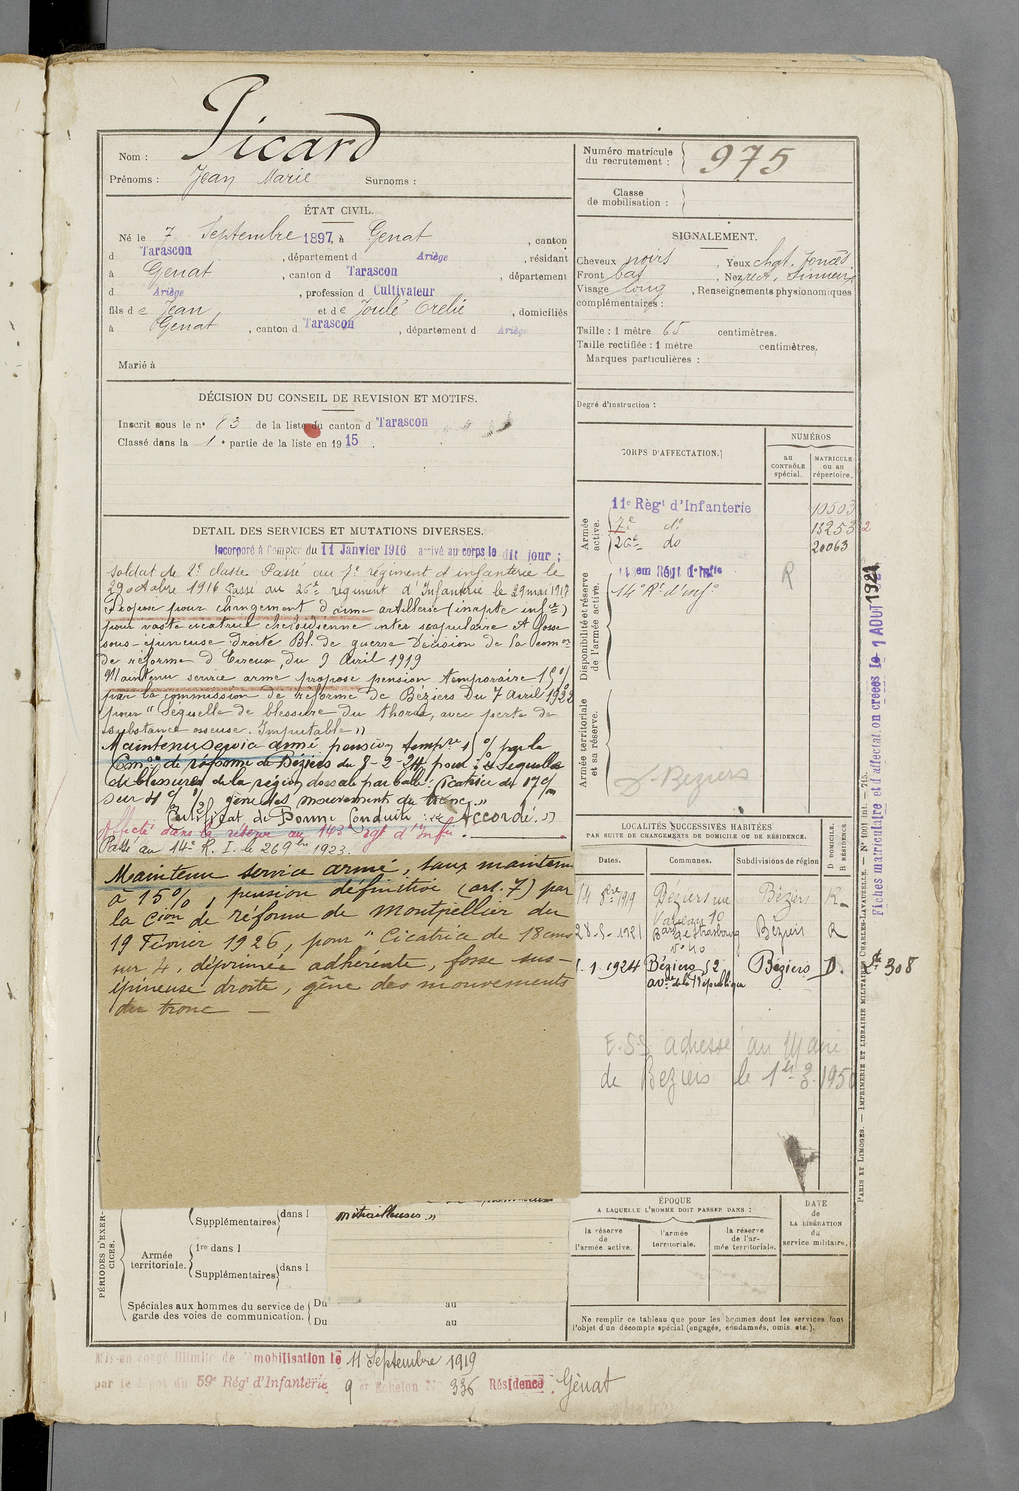 Nom : Picard
Prénoms : Jean Marie Surnoms :
Numéro matricule
du recrutement : 975
Classe
de mobilisation :
ÉTAT CIVIL.
Né le 7 Septembre 1897, à Génat , canton
d Tarascon , département d Ariège , résidant
à Génat , canton d Tarascon , département
d Ariège , profession d Cultivateur
fils de Jean et de Joulé , domiciliés
à Génat , canton d Tarascon , département d Ariège
Marié à
SIGNALEMENT.
Cheveux noirs , Yeux chat. foncés
Front bas , Nez rect. sinueux
Visage long , Renseignements physionomiques
complémentaires :
Taille : 1 mètre 65 centimètres.
Taille rectifiée : 1 mètre centimètres.
Marques particulières :
Degré d'instruction :
DÉCISION DU CONSEIL DE REVISION ET MOTIFS.
Inscrit sous le n° de la liste du canton d Tarascon
Classé dans la 1e partie de la liste en 1915.
DETAIL DES SERVICES ET MUTATIONS DIVERSES.
Incorporé à Compter du 11 Janvier 1916 arrivé au corps le dit jour ;
Soldat de 2e classe Passé au 7e régiment d'infanterie le
29 octobre 1916 Passé au 26e régiment d'Infanterie le 29 mai 1917
Proposé pour changement d'arme artillerie (inapte infie)
pour vaste cicatrice chéloïdienne inter scapulaire et fosse
sous-épineuse droite Bl. de guerre Décision de la Comon
de réforme d'Evreux du 9 Avril 1919
Maintenu service armé propose pension temporaire 15%
par la commission de réforme de Béziers du 7 Avril 1922
pour "Séquelle de blessure du thorax, avec perte de
substance osseuse. Imputable"
Maintenu service armé pension tempre % par la
Comon de réforme de Béziers du 8-2-24 pour : Séquelles
de blessures de la région dorsale par balle. Cicatrice de 17 c/m
sur 4 c/m gêne des mouvements du tronc."
Certificat de Bonne Conduite : "Accordé."
Affecté dans la réserve au 143e Régt d'Infie.
Passé au 14e R. I. le 26 9bre 1923.
Maintenu service armé, taux maintenu
à 15%, pension définitive (art. 7) par
la Cion de réforme de Montpellier du
19 Février 1926, pour "Cicatrice de 18 cms
sur 4, déprimée adhérente, fosse sus-
épineuse droite, gêne des mouvements
du tronc —
CORPS D'AFFECTATION.
NUMÉROS
au
CONTRÔLE
spécial.
MATRICULE
ou au
répertoire.
Armée
active.
11e Régt d'Infanterie 10503
7e do 13253
26e do 20063
Disponibilité et réserve
de l'armée active.
14e Rt d'Infie R
Armée territoriale
et sa réserve.
Béziers
LOCALITÉS SUCCESSIVES HABITÉES
PAR SUITE DE CHANGEMENTS DE DOMICILE OU DE RÉSIDENCE.
Dates. Communes. Subdivisions de région. D DOMICILE. R RÉSIDENCE.
14 8bre 1919 Béziers rue 10 Béziers R
28-5-1921 Bard de Strasbourg n° 40 Béziers R
1.1.1924 Béziers 52 avue de la République Béziers D.
Rt 308
adressé au Maire
de Béziers le
ÉPOQUE
A LAQUELLE L'HOMME DOIT PASSER DANS :
la réserve
de
l'armée active.
l'armée
territoriale.
la réserve
de l'ar-
mée territoriale.
DATE
de
LA LIBÉRATION
du
service militaire.
Ne remplir ce tableau que pour les hommes dont les services font
l'objet d'un décompte spécial (engagés, condamnés, omis, etc.).
PÉRIODES D'EXER-
CICES.
Supplémentaires dans l
mitrailleuses."
Armée
territoriale.
1re dans l
Supplémentaires dans l
Spéciales aux hommes du service de
garde des voies de communication.
Du au
Du au
Mis en congé illimité de démobilisation le 11 Septembre 1919
par le dépôt du 59e Régt d'Infanterie 9e Echelon N° 336 Résidence : Génat
Fiches matriculaire et d'affectation créées le 1 AOUT 1921
PARIS ET LIMOGES. — IMPRIMERIE ET LIBRAIRIE MILITAIRES CHARLES-LAVAUZELLE. — N° 1001 int. — 715.